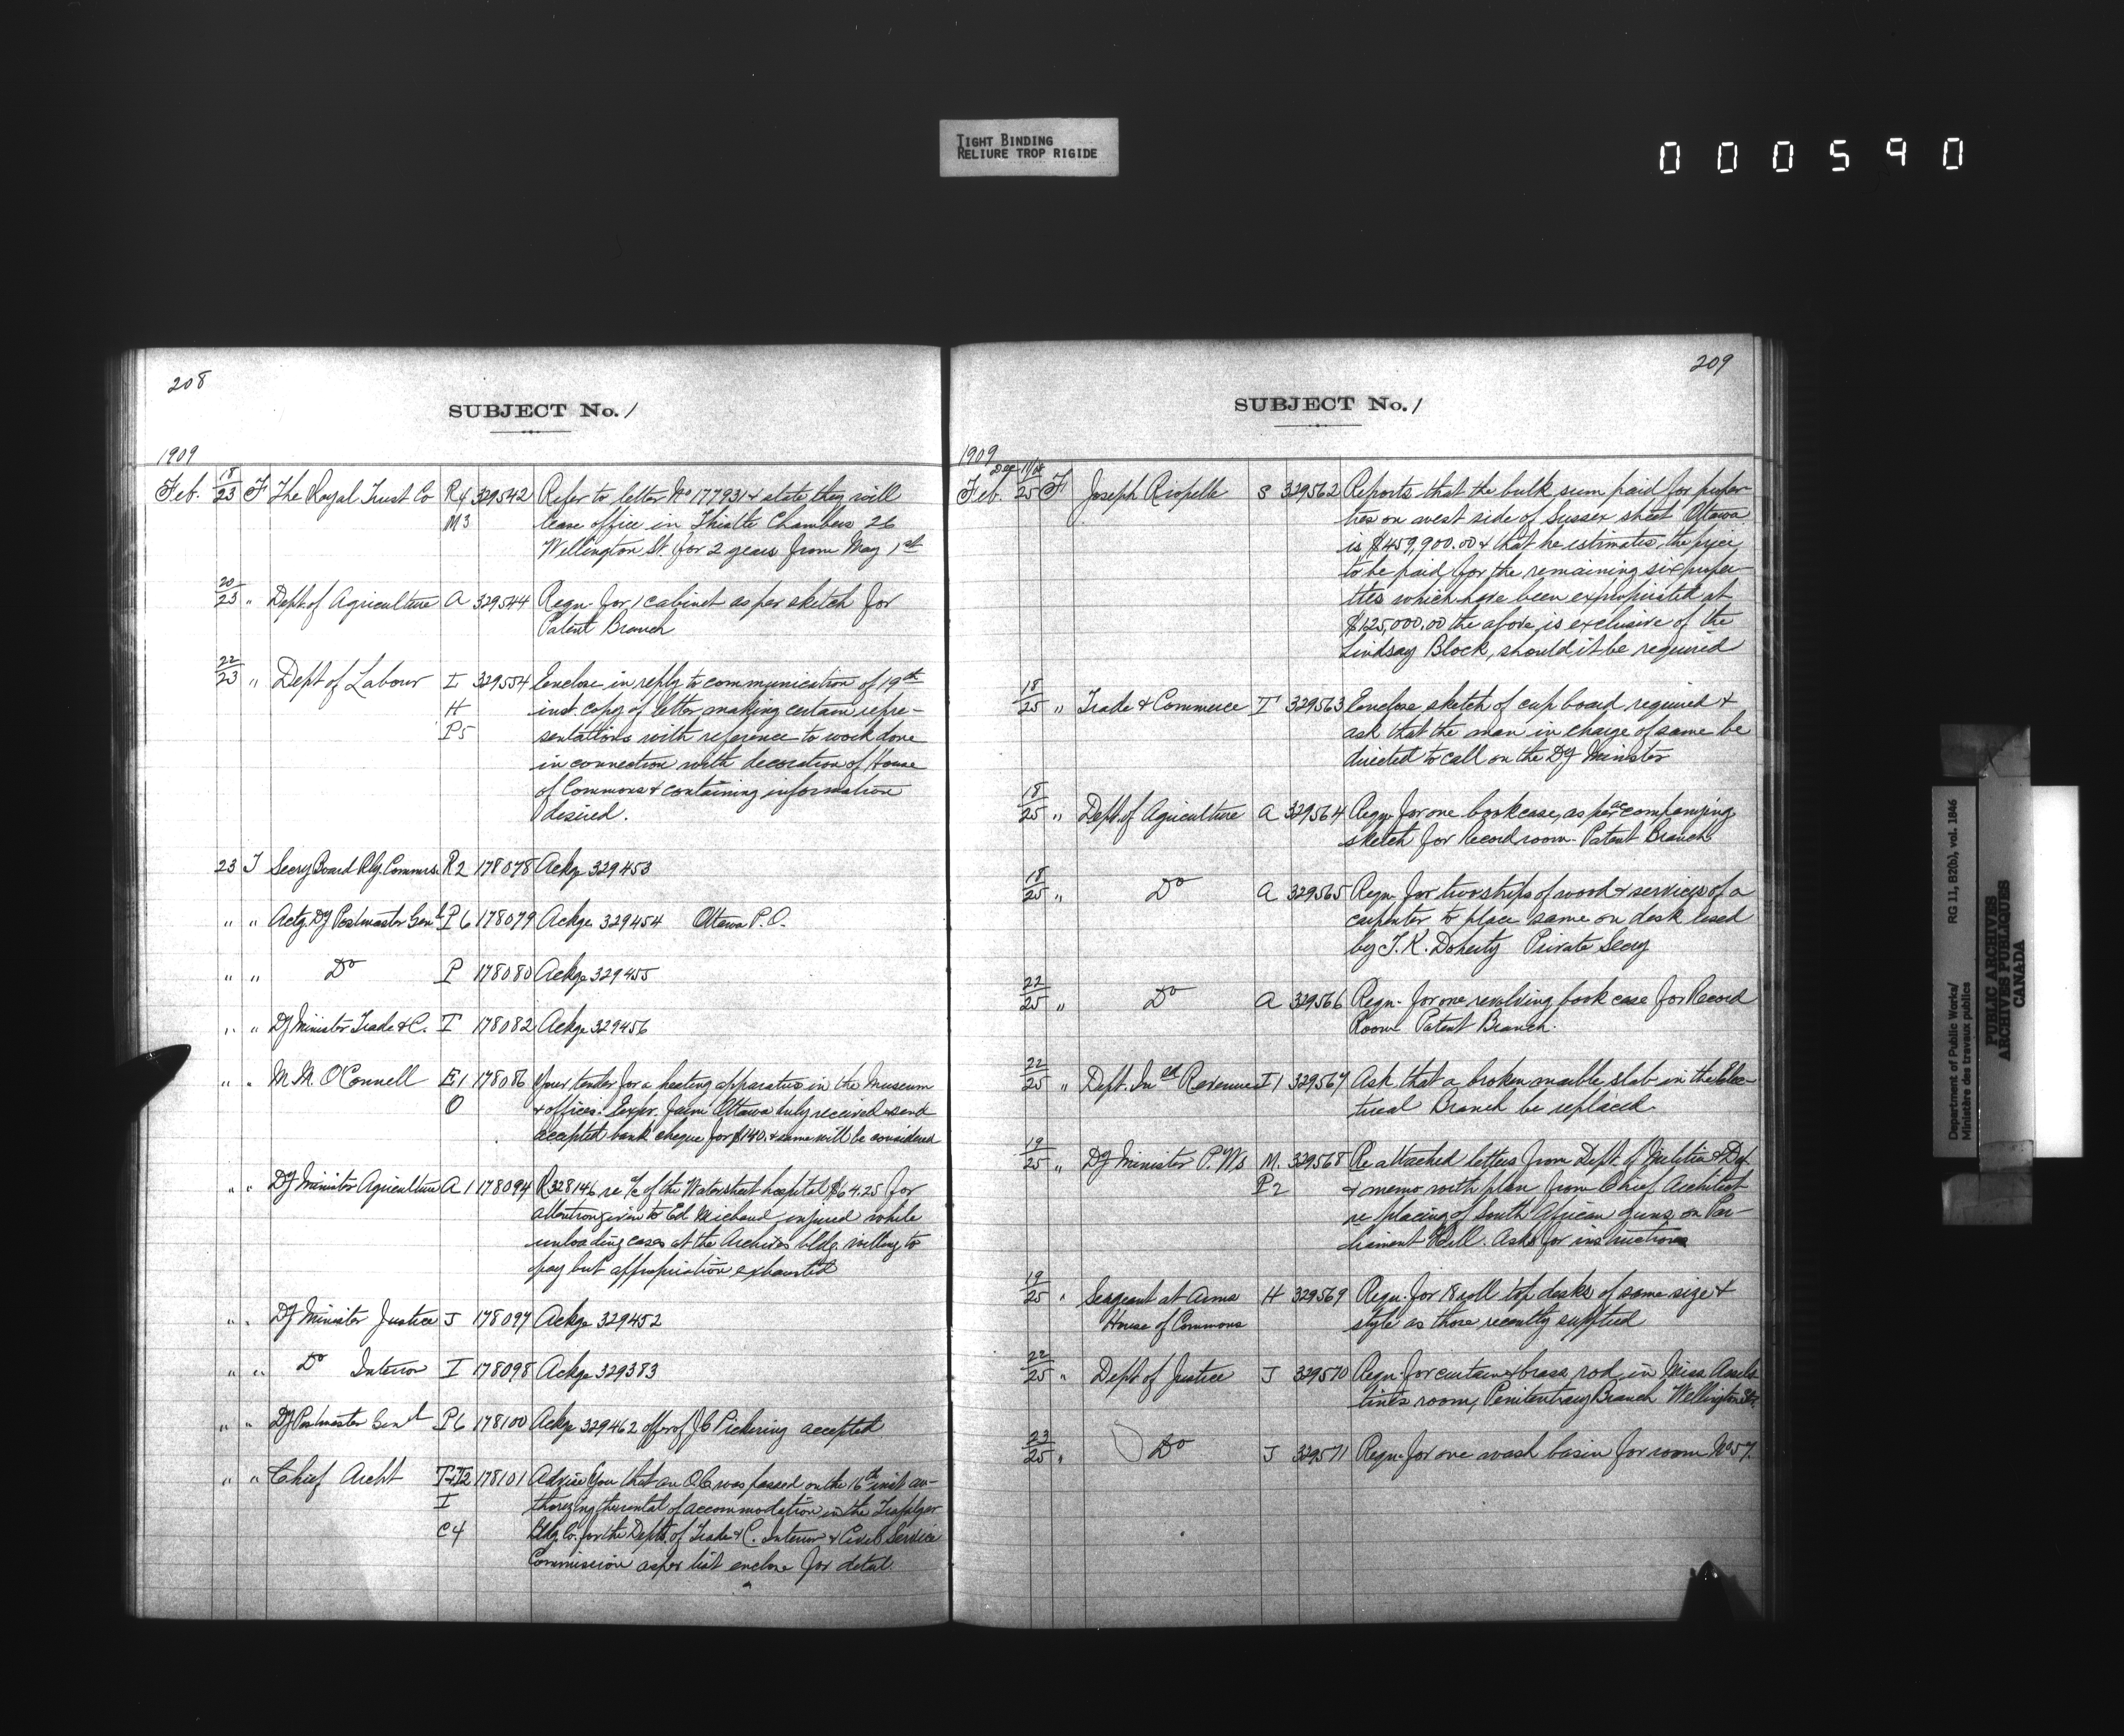 TIGHT BINDING
RELIURE TROP RIGIDE
000590
208
SUBJECT No. 1
1909
Feb. 18/23 F The Royal Trust Co R4 329542 Refer to letter No 177931 & state they will
M3 lease office in Thistle Chambers 26
Wellington St. for 2 years from May 1st
20/23 " Dept. of Agriculture A 329544 Reqn. for 1 cabinet as per sketch for
Patent Branch
22/23 " Dept of Labour L 329554 Enclose in reply to communication of 19th
H inst. copy of letter making certain repre-
P5 sentations with reference to work done
in connection with decoration of House
of Commons & containing information
desired.
23 T Secry Board Rly. Commrs. R2 178078 Ackge 329453
" " Actg. Dy Postmaster Genl P6 178079 Ackge 329454 Ottawa P.O.
" " Do P 178080 Ackge 329455
" " Dy Minister Trade & C. T 178082 Ackge 329456
" " M. M. O'Connell E1 178086 Your tender for a heating apparatus in the Museum
O & offices. Exper. farm Ottawa duly received & send
accepted bank cheque for $140. & same will be considered
" " Dy Minister Agriculture A1 178094 R 328146 re a/c of the Water street hospital $64.25 for
attention given to Ed. Michaud injured while
unloading cases at the Archives bldg. willing to
pay but appropriation exhausted
" " Dy Minister Justice J 178097 Ackge 329452
" " Do Interior I 178098 Ackge 329383
" " Dy Postmaster Genl P6 178100 Ackge 329462 offer of J C Pickering accepted
" " Chief Archt T-T2 178101 Advise you that an O.C. was passed on the 16th inst. au-
I thorizing the rental of accommodation in the Trafalgar
C4 Bldg. Co. for the Depts. of Trade & C. Interior & Civil Service
Commission as per list enclose for detail.
209
SUBJECT No. 1
1909
Dec 11/08
Feb. 25 F Joseph Riopelle S 329562 Reports that the bulk sum paid for proper-
ties on west side of Sussex street Ottawa
is $459,900.00 & that he estimates the price
to be paid for the remaining six proper-
ties which have been expropriated at
$125,000.00 the above is exclusive of the
Lindsay Block, should it be required
18/25 " Trade & Commerce T 329563 Enclose sketch of cupboard required &
ask that the man in charge of same be
directed to call on the Dy Minister
18/25 " Dept. of Agriculture A 329564 Reqn. for one bookcase, as per accompanying
sketch for Record room. Patent Branch
18/25 " Do A 329565 Reqn. for two strips of wood & services of a
carpenter to place same on desk used
by T. K. Doherty Private Secry
22/25 " Do A 329566 Reqn. for one revolving book case for Record
Room Patent Branch.
22/25 " Dept. Ind Revenues I1 329567 Ask that a broken marble slab in the Elec-
trical Branch be replaced.
19/25 " Dy Minister P. Ws M. 329568 Re attached letters from Dept. of Militia & Def.
P2 & memo with plan from Chief Architect
re placing of South African guns on Par-
liament Hill. Asks for instructions
19/25 " Seargeant at Arms H 329569 Reqn. for 18 roll top desks of same size &
House of Commons style as those recently supplied
22/25 " Dept of Justice J 329570 Reqn. for curtain & brass rod in Miss
room, Penitentiary Branch Wellington St.
23/25 " Do J 329571 Reqn. for one wash basin for room No 57.
Department of Public Works/ RG 11, B2(b), vol. 1846
Ministère des travaux publics
PUBLIC ARCHIVES
ARCHIVES PUBLIQUES
CANADA